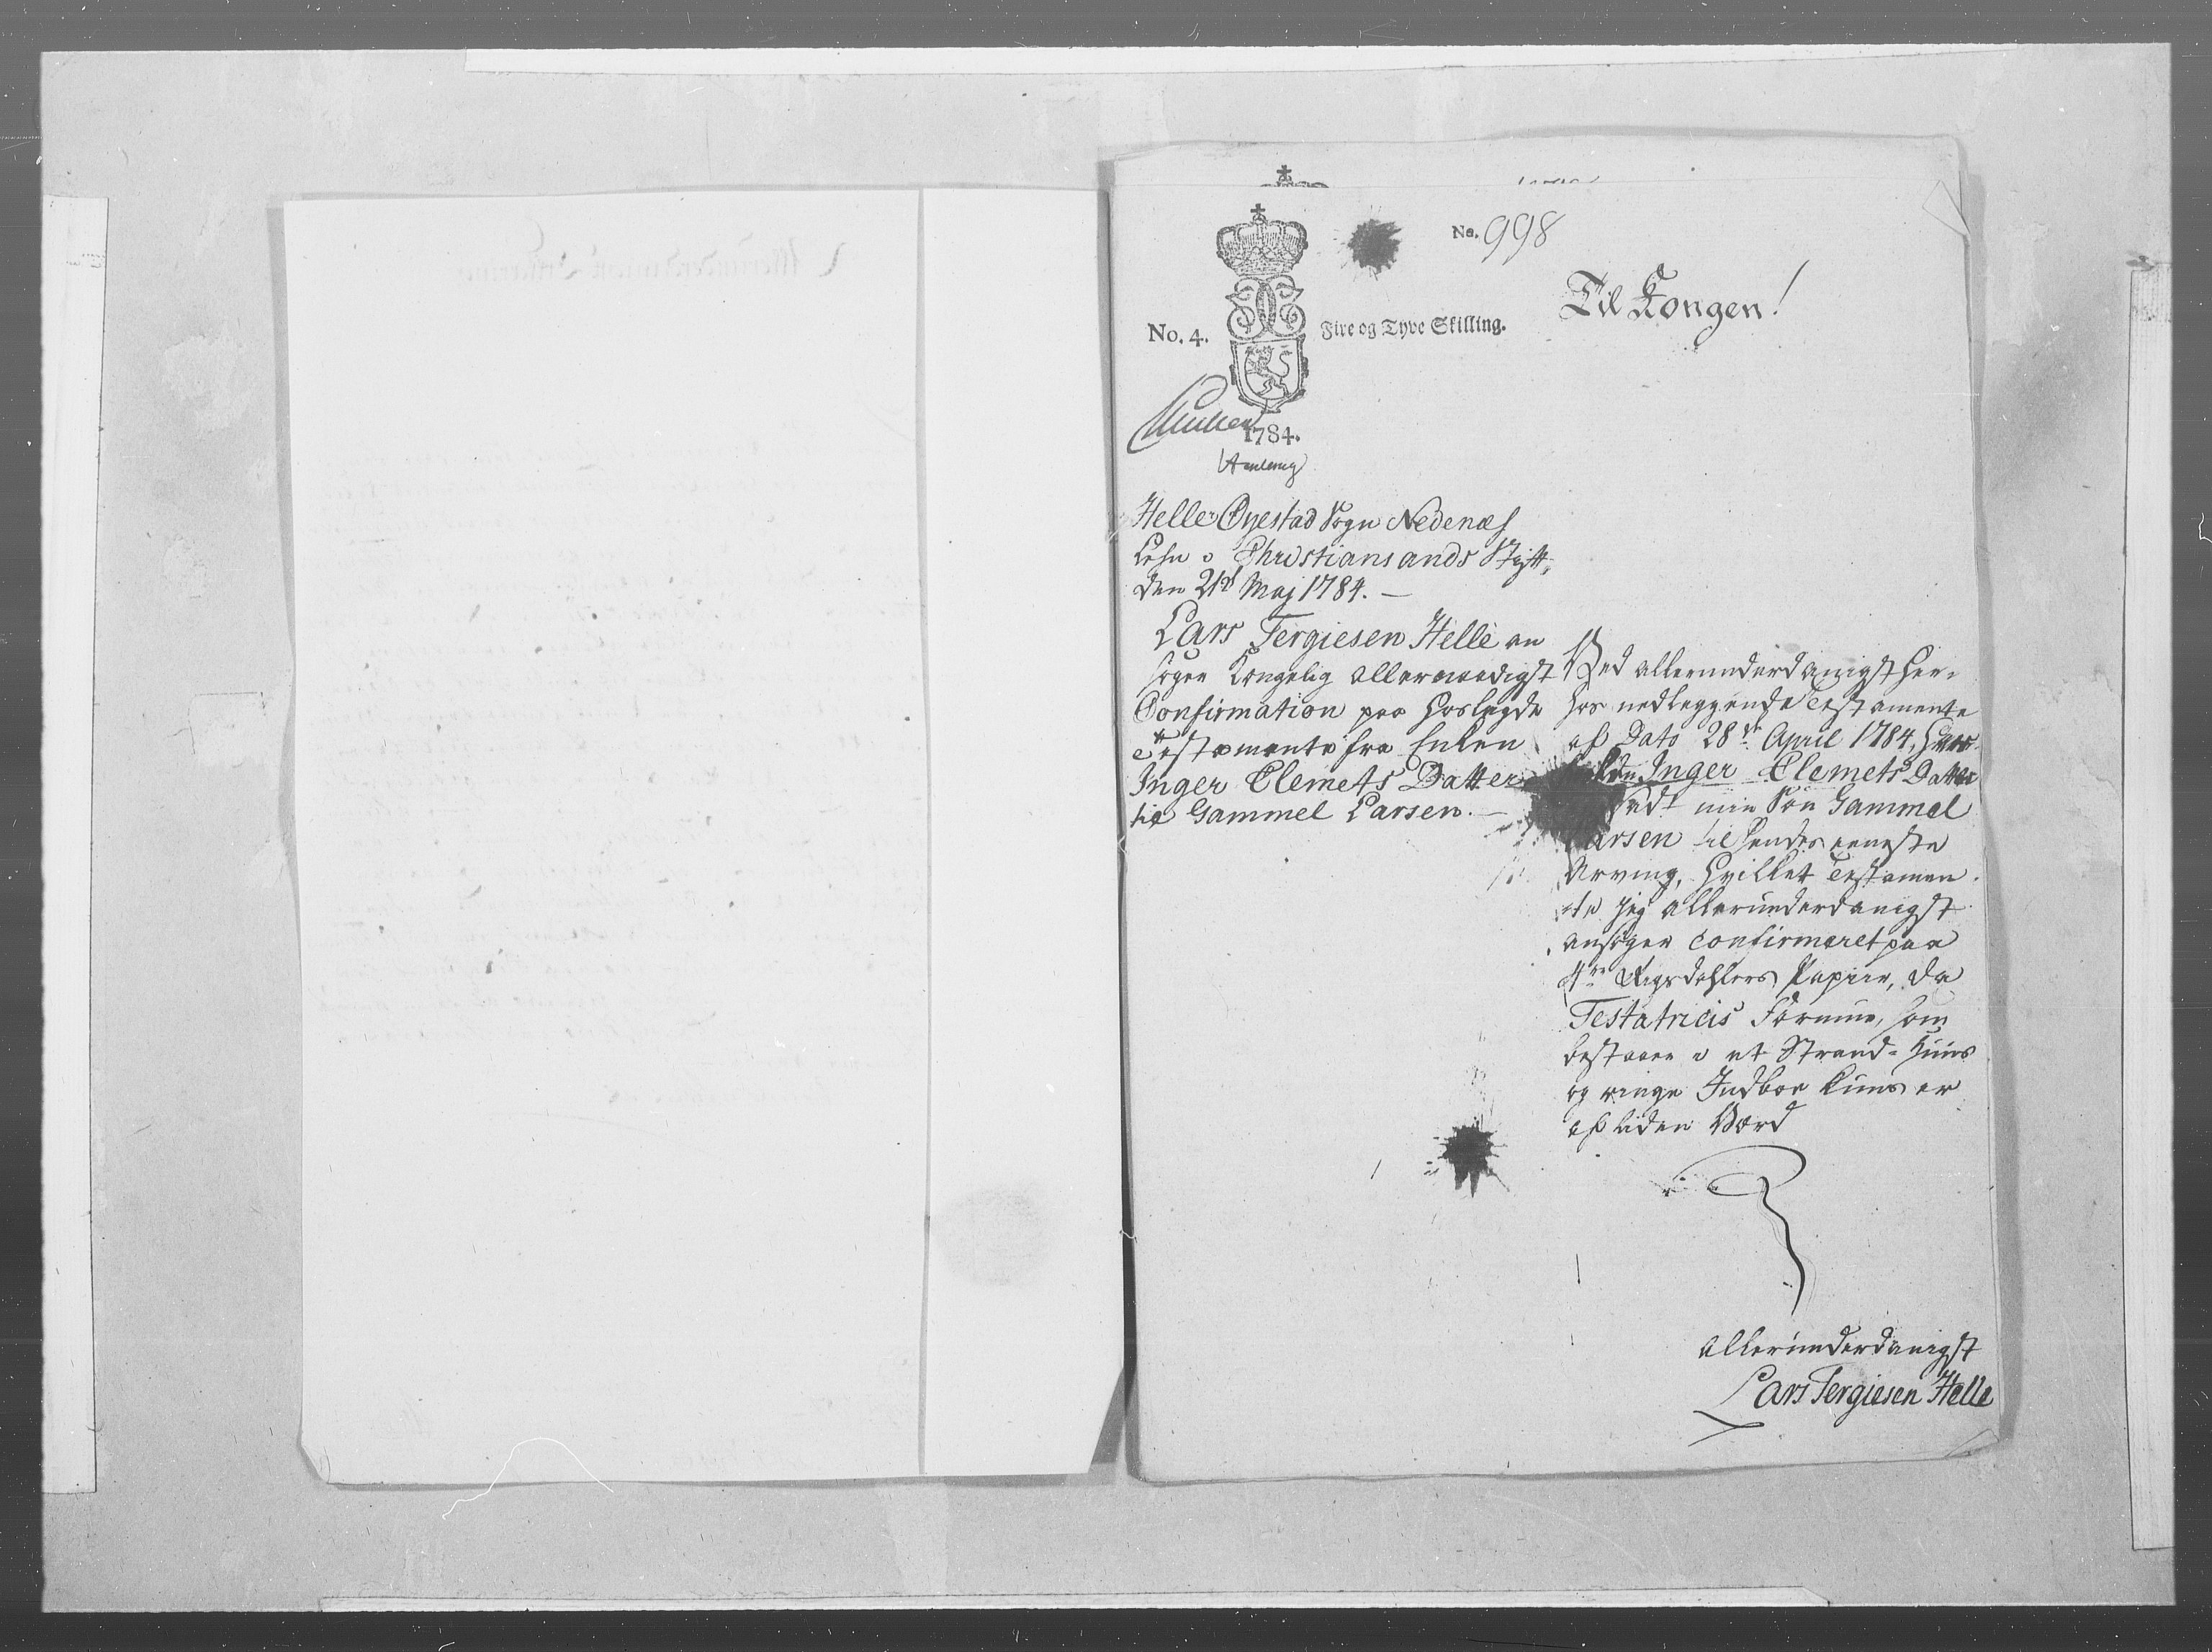 No. 998
Til Kongen!
No. 4. Fire og Tyve Skilling.
1784.
Helle Øyestad Sogn Nedenæs
Lehn i Christiansands Stift,
den 21d Maj 1784. —
Lars Tergiesen Helle an
søger Kongelig allernaadigst
Confirmation paa hoslagde
Testamente fra Enken
Inger Clemets Datter
til Gammel Larsen. —
Ved allerunderdanigst her-
hos nedleggende Testamente
af Dato 28de April 1784, har
Inger Clemets Datter
min Søn Gammel
Larsen til hendes eeneste
Arving, hvilket Testamen
-te jeg allerunderdanigst
ansøger confirmeret paa
4re Rigsdahlers Papiir, da
Testatricis Formue, som
bestaaer i et Strand-Huus
og ringe Indboe kuns er
af liden Værd
allerunderdanigst
Lars Tergiesen Helle